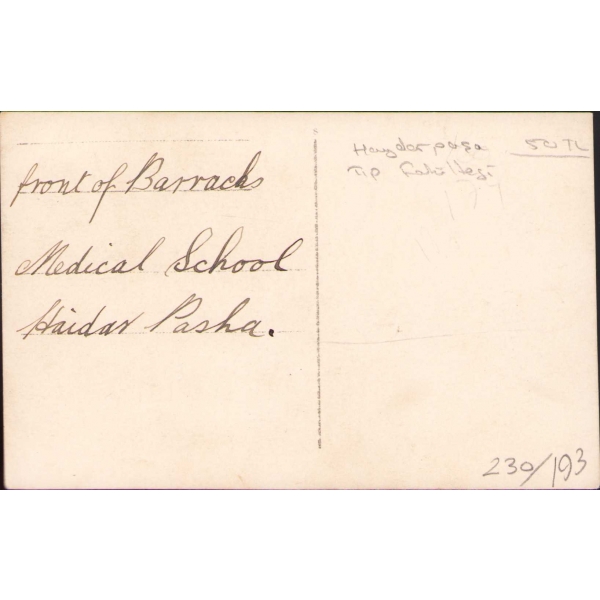 front of Barracks
Medical School
Haidar Pasha.
Haydarpaşa
Tıp Fakültesi
50 TL
230/193